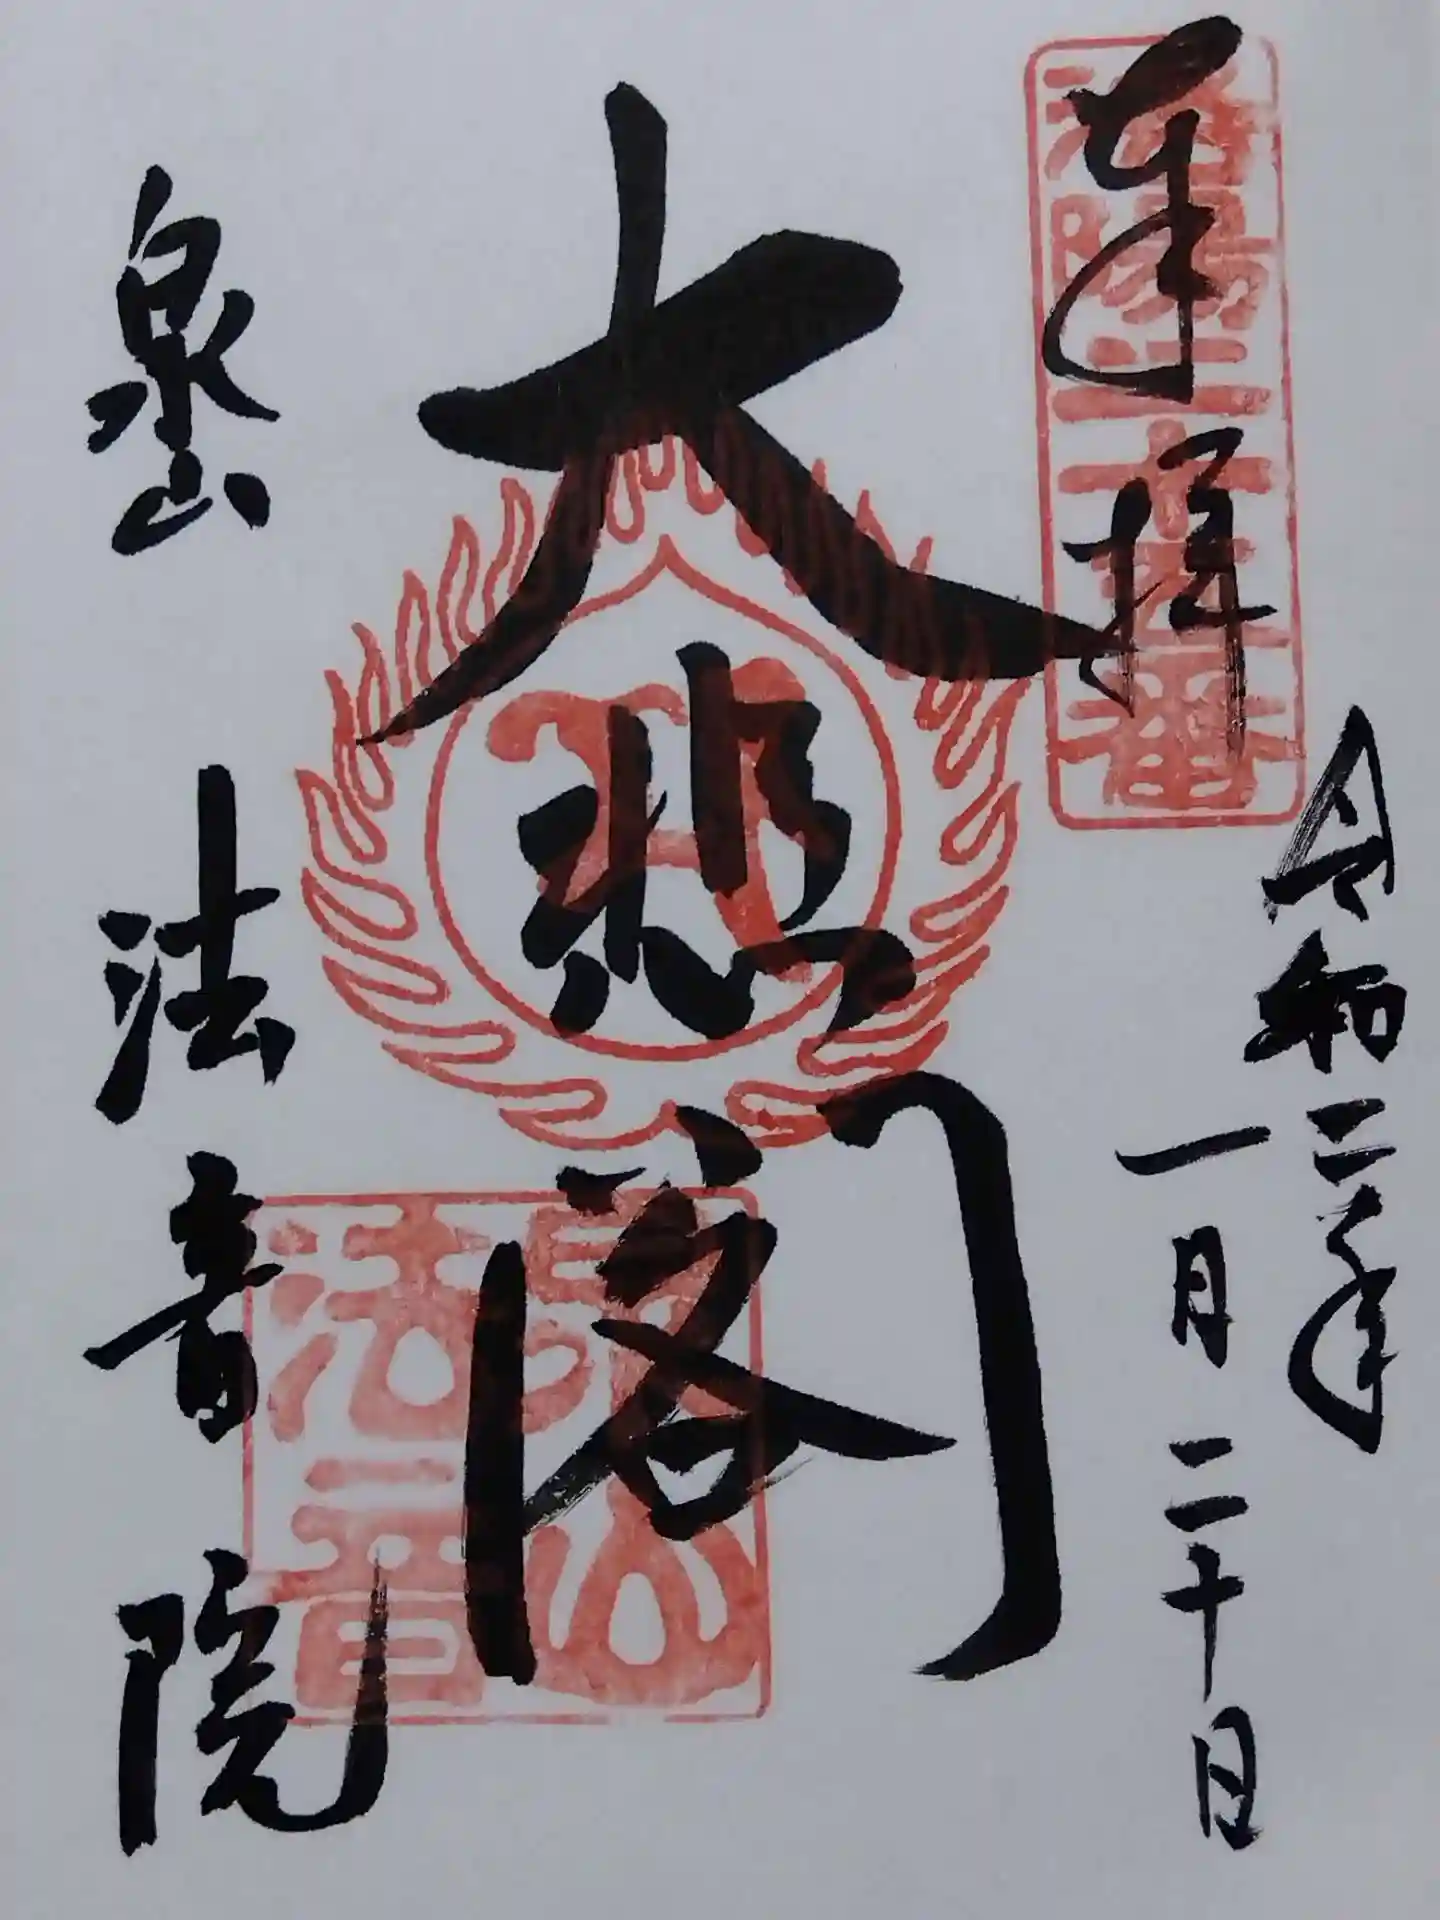 奉拝
洛陽二十五番
令和二年
一月二十日
大悲閣
泉山
法音院
泉山
法音